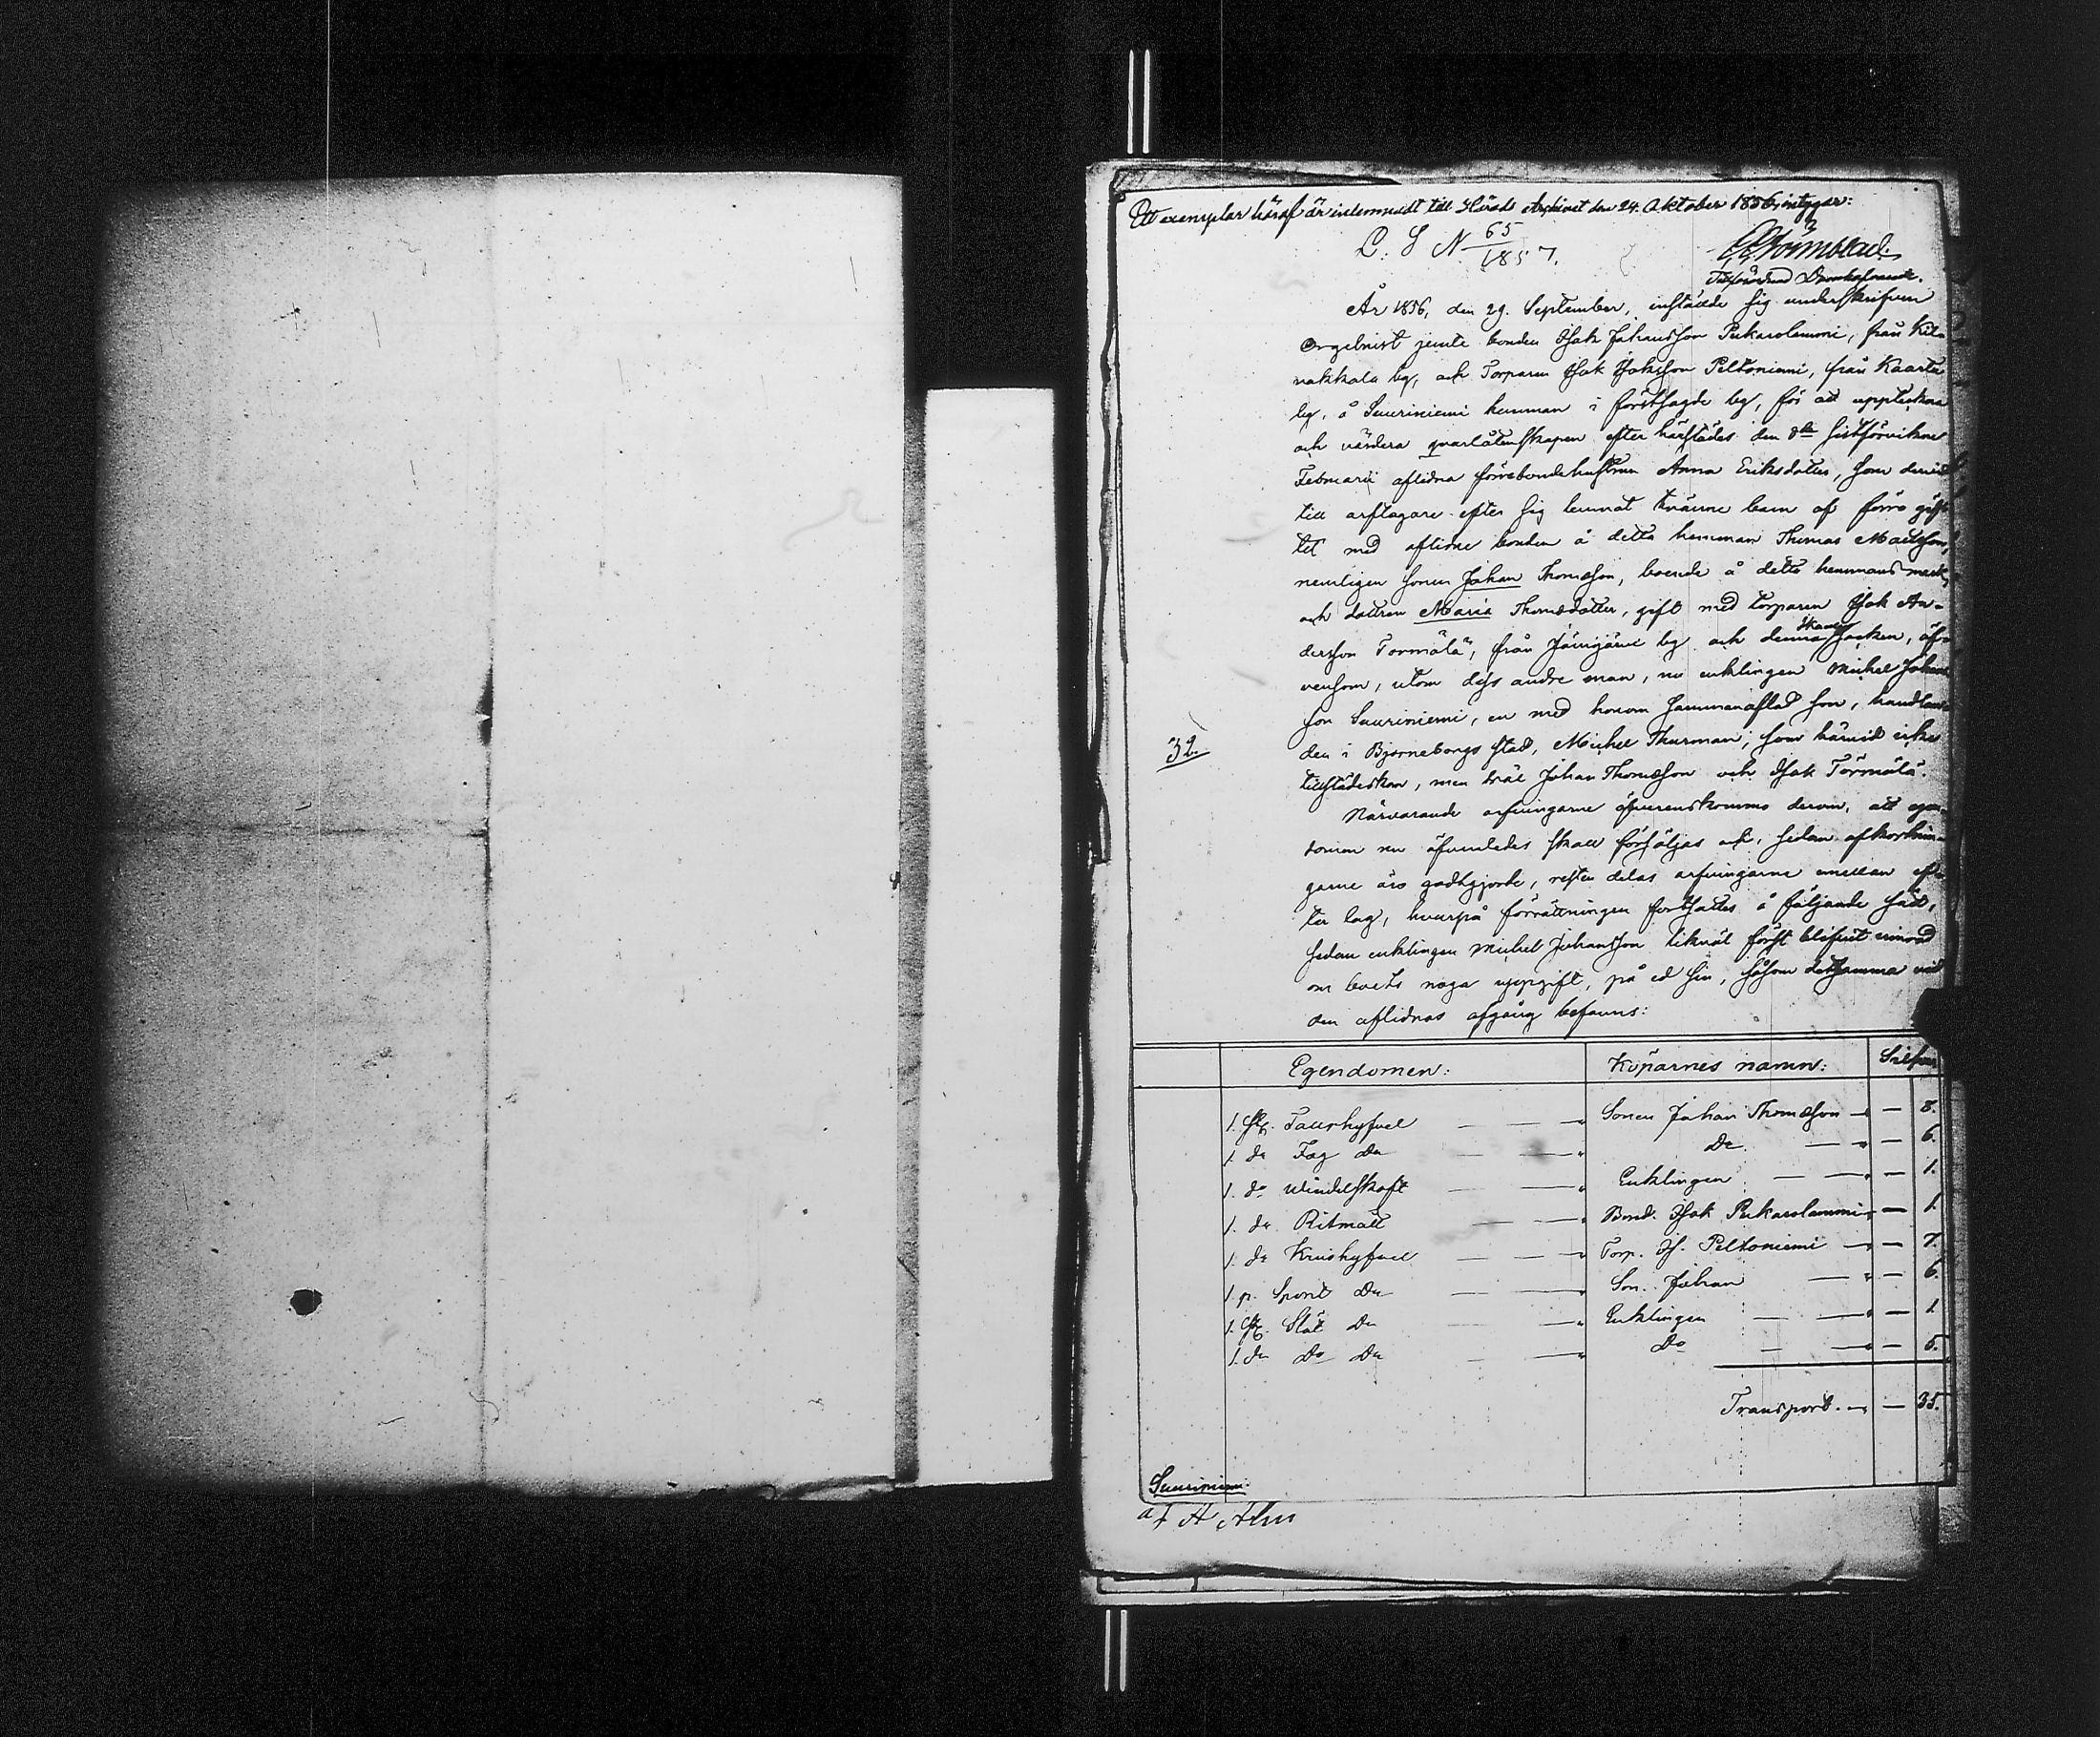 Ett exemplar häraf är inlemnadt till Härads Archivet den 24. Oktober 1856, intygar:
L. S N 65/1857.
Tillförordnad Domhafvande.
År 1856, den 29. September, inställde sig underskrifven
Orgelnist jemte bonden Isak Johansson Pukarolammi, från Kil-
vakkala by, och Torparen Isak Isaksson Peltoniemi, från Kaarta
by, å Sauriniemi hemman i förstsagde by, för att uppteckna
och värdera qvarlåtenskapen efter härstädes den 8de sistförvikne
Februarii aflidna förrebondehustrun Anna Eriksdotter, som dervid
till arftagare efter sig lemnat tvänne barn af förra gif-
tet med aflidne bonden å detta hemman Thomas Mattsson,
nemligen sonen Johan Thomæson, boende å detta hemmans mark,
och dottren Maria Thomædotter, gift med torparen Isak An-
dersson Tormälä, från Jämijärvi by och denna Socken, äf-
vensom, utom dess andre man, nu enklingen Michel Johans
son Sauriniemi, en med honom sammanaflad son, handlan-
den i Bjorneborgs stad, Michel Thurman; som härvid icke
32.
tillstädeskom, men väl Johan Thomæson och Isak Törmälä.
Närvarande arfvingarne öfverenskommo derom, att egen-
domen nu äfvenledes skall försäljas och, sedan afkortnin-
garne äro godtgjorde, resten delas arfvingarne emellan ef-
ter lag, hvarpå förrättningen fortsattes å följande sätt,
sedan enklingen Michel Johansson likväl först blifvit erinrad
om boets noga uppgift, på ed sin, såsom detsamma vid
den aflidnas afgång befanns:
Egendomen: Köparnes namn: Silfver
1. St. Taushyfvel — — " Sonen Johan Thomæson — " — 8.
1. do Fog Do — — " Do — " — 6.
1. do Windelskaft — — " Enklingen — — " — 1.
1. do Ritmått — — " Bond. Isak Pukarolammi " — 1.
1. do Krushyfvel — — " Torp. Is. Peltoniemi — " — 7.
1. p. Spont Do — — " Son. Johan — " — 6.
1. St. Slät Do — " Enklingen — — " — 1
1. do Do Do — — " Do — — " — 5.
Transport. — " — 35.
Sauriniemi.
af A Alm